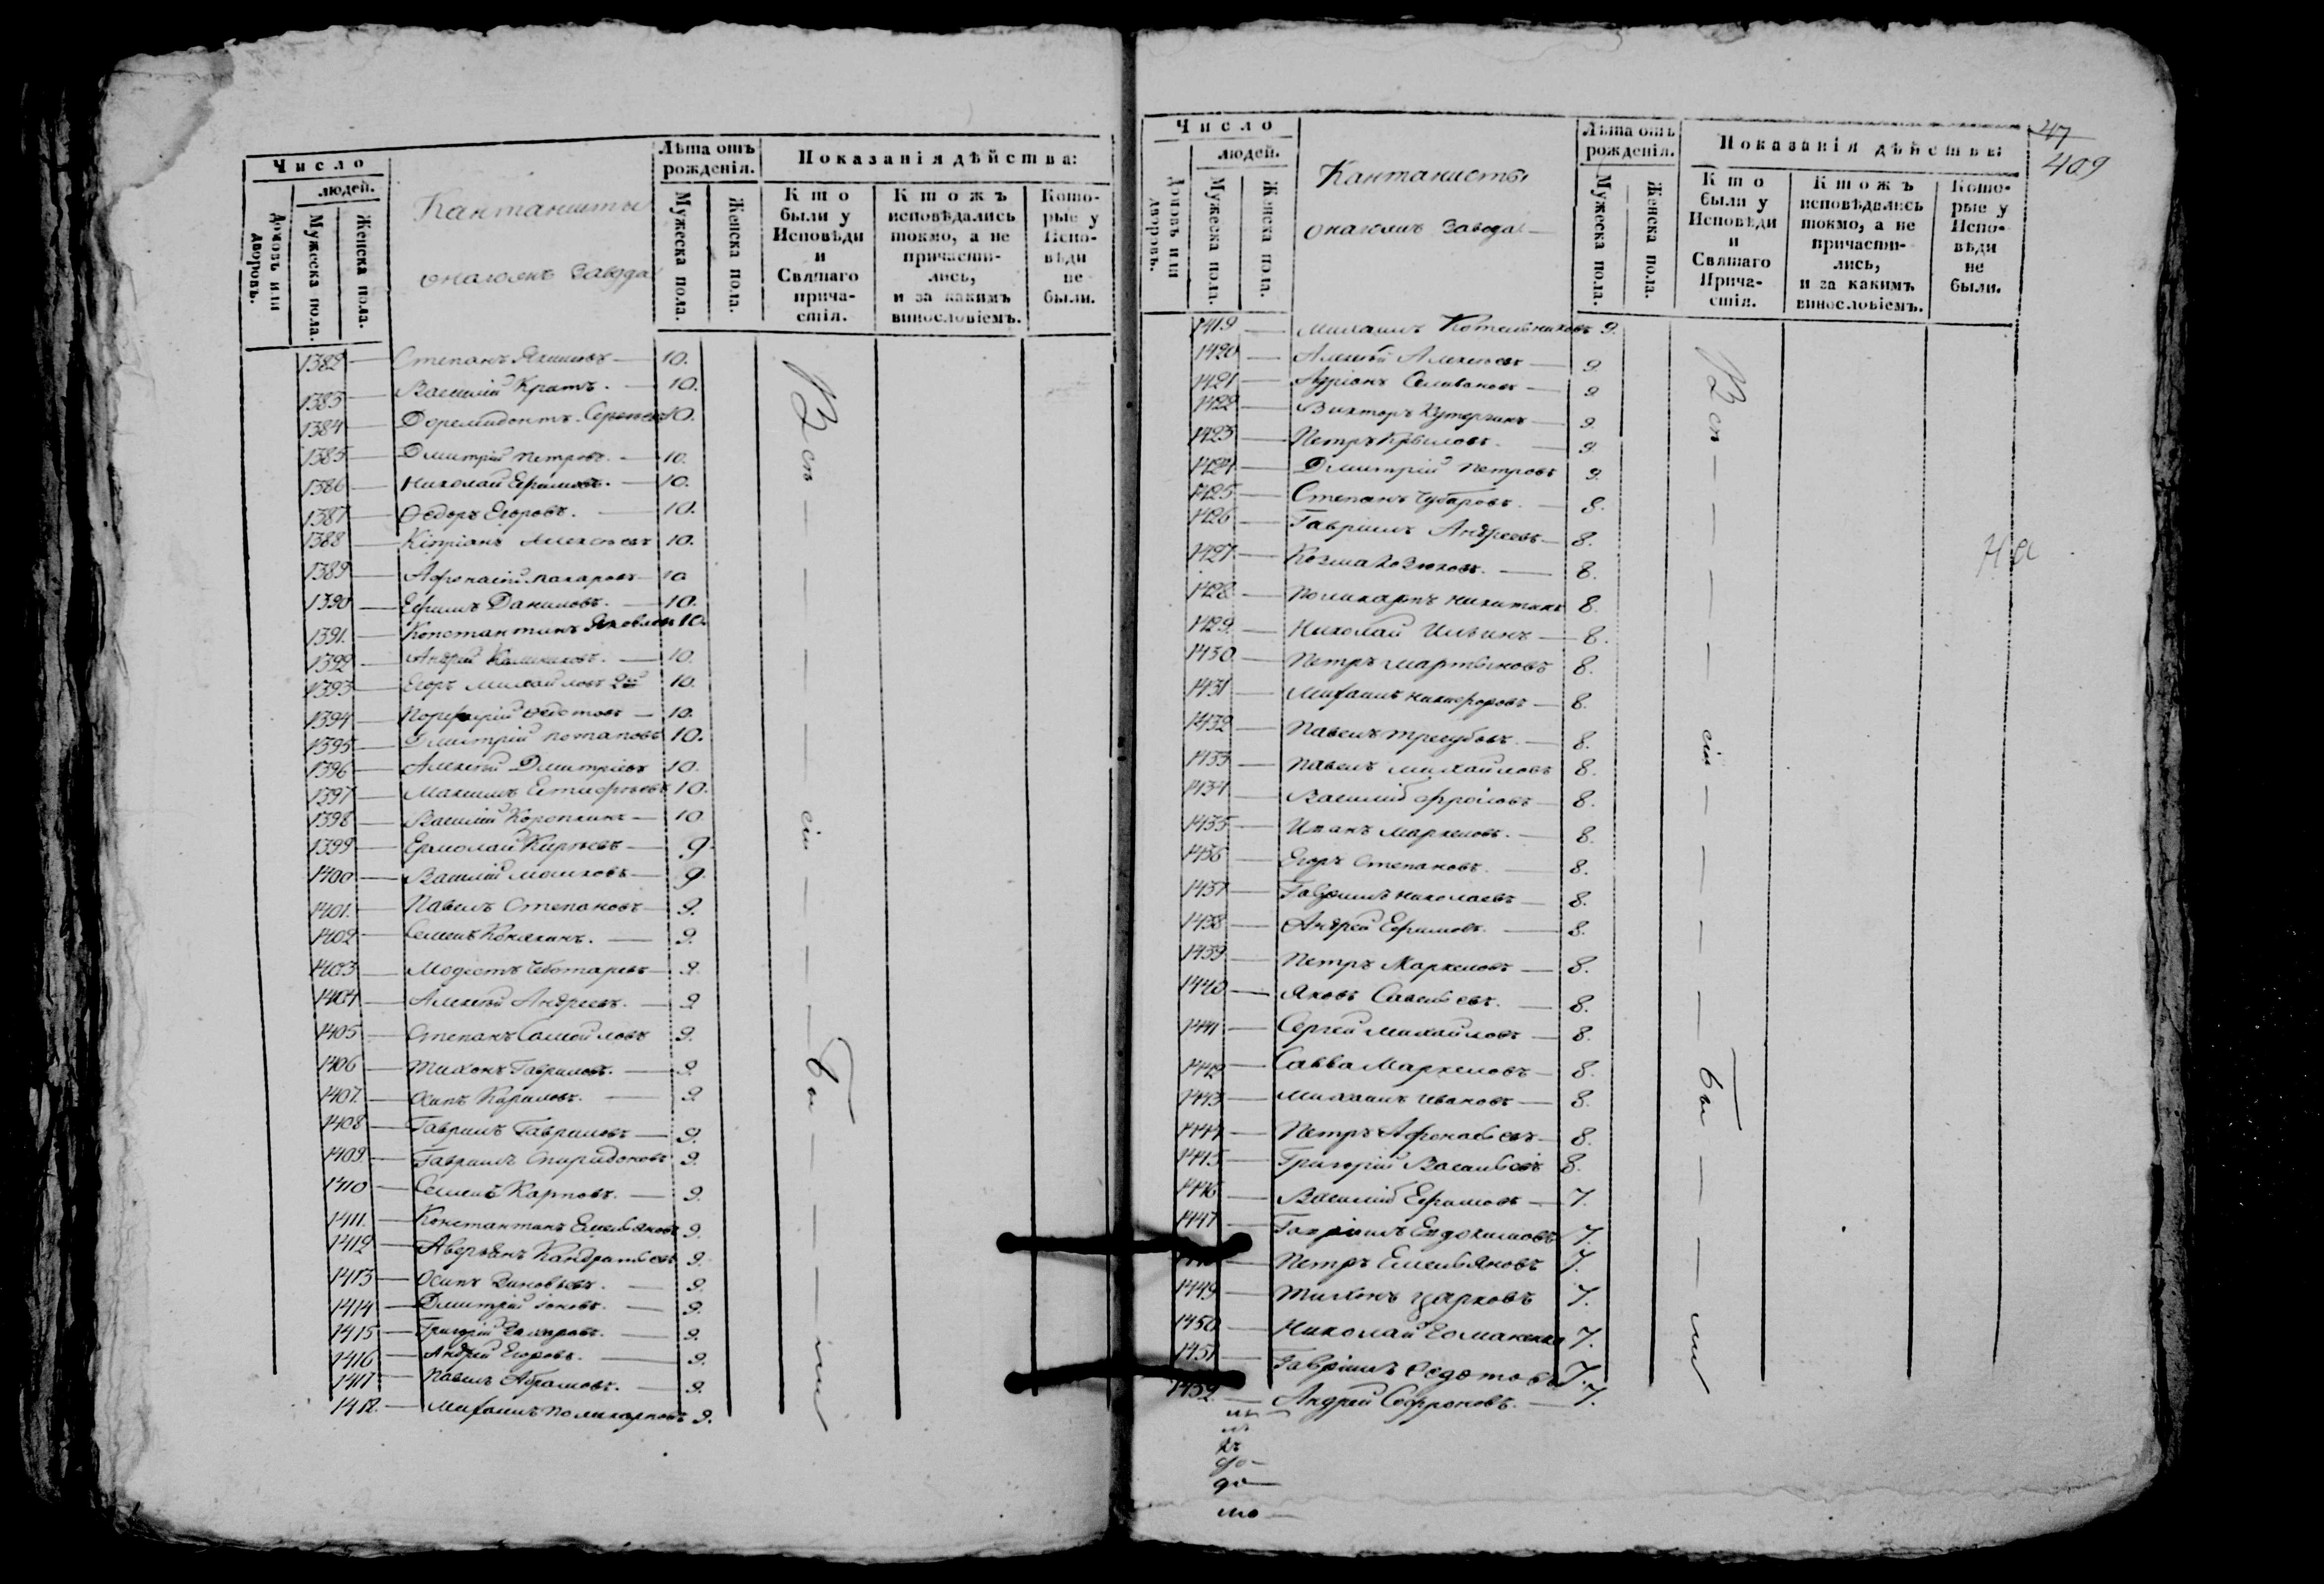 Число
людей.
Домовъ или дворовъ.
Мужеска пола.
Женска пола.
Кантанисты
онаго же завода
Лѣта отъ рожденія.
Мужеска пола.
Женска пола.
Показанія дѣйства:
Кто были у Исповѣди и Святаго причастія.
Ктожъ исповѣдались токмо, а не причастились, и за какимъ винословіемъ.
Которые у Исповѣди не были.
1382 — Степанъ — 10.
1383 — Василій Кратъ. — 10.
1384 — Доремидонтъ 10.
1385 — Дмитрій Петровъ. — 10.
1386 — Николай Ефимовъ. — 10.
1387 — Ѳедоръ Егоровъ. — 10.
1388 — Кипріанъ Алексѣевъ 10.
1389 — Афонасій Макаровъ — 10
1390 — Ефимъ Даниловъ. — 10.
1391. — Константинъ Яковлевъ 10.
1392 — Андрей — 10.
1393 — Егоръ Михайловъ 2й 10.
1394 — Порфирій Ѳедотовъ — 10.
1395 — Дмитрій Потаповъ 10.
1396 — Алексѣй Дмитріевъ 10.
1397 — Максимъ Естифѣевъ 10.
1398 — Василій — 10.
1399 — Ермолай Кирѣевъ — 9
1400 — Василій — 9.
1401. — Павелъ Степановъ — 9.
1402 — Семенъ Конюхинъ. — 9.
1403 — Модестъ Чеботаревъ — 9.
1404 — Алексѣй Андреевъ. — 9.
1405 — Степанъ Самойловъ 9.
1406 — Тихонъ Гавриловъ. — 9.
1407. — Осипъ Кариловъ. — 9.
1408 — Гаврилъ Гавриловъ — 9.
1409. — Гаврилъ Спиридоновъ 9.
1410 — Семенъ Карповъ. — 9.
1411. — Константинъ Емельяновъ 9.
1412 — Аверьянъ Кандратьевъ 9.
1413 — Осипъ Зиновьевъ. — 9.
1414 — Дмитрій Іоновъ. — 9.
1415 — Григорій Захаровъ. — 9.
1416 — Андрей Егоровъ. — 9.
1417 — Павелъ Абрамовъ. — 9.
1418. — Михаилъ Поликарповъ 9.
Всѣ
сіи
бы
ли
47
409
Число
людей.
Домовъ или дворовъ.
Мужеска пола.
Женска пола.
Кантанисты
онаго же завода —
Лѣта отъ рожденія.
Мужеска пола.
Женска пола.
Показанія дѣйства:
Кто были у Исповѣди и Святаго Причастія.
Ктожъ исповѣдались токмо, а не причастились, и за какимъ винословіемъ.
Которые у Исповѣди не были.
1419 — Михаилъ Котельниковъ 9.
1420 — Алексѣй Алексѣевъ — 9.
1421 — Адріанъ Селивановъ — 9
1422 — Викторъ Кутергинъ — 9.
1423 — Петръ Крыловъ. — 9.
1424 — Дмитрій Петровъ 9.
1425 — Степанъ Чубаровъ. — 8.
1426 — Гавріилъ Андреевъ — 8.
1427 — Козма — 8.
1428 — Поликарпъ Никитинъ 8.
1429. — Николай Ильинъ — 8.
1430. — Петръ Мартыновъ 8.
1431 — Михаилъ Никифоровъ — 8.
1432 — Павелъ Трегубовъ. — 8.
1433 — Павелъ Михайловъ 8.
1434 — Василій Фроловъ — 8.
1435 — Иванъ Маркеловъ. — 8.
1436 — Егоръ Степановъ. — 8.
1437 — Гавріилъ Николаевъ — 8.
1438 — Андрей Ефимовъ. — 8.
1439 — Петръ Маркеловъ — 8.
1440 — Яковъ Савельевъ. — 8.
1441 — Сергей Михайловъ — 8.
1442 — Савва Маркеловъ — 8.
1443 — Михаилъ Ивановъ — 8.
1444 — Петръ Афонасьевъ — 8.
1445 — Григорій Васильевъ 8.
1446 — Василій Ефимовъ — 7.
1447 — Гавріилъ Евдокимовъ 7.
— Петръ Емельяновъ 7.
1449 — Тихонъ Царковъ 7.
1450 — Николай 7.
1451 — Гавріилъ Ѳедотовъ 7.
1452. — Андрей Софроновъ. — 7.
Всѣ
сіи
бы
ли